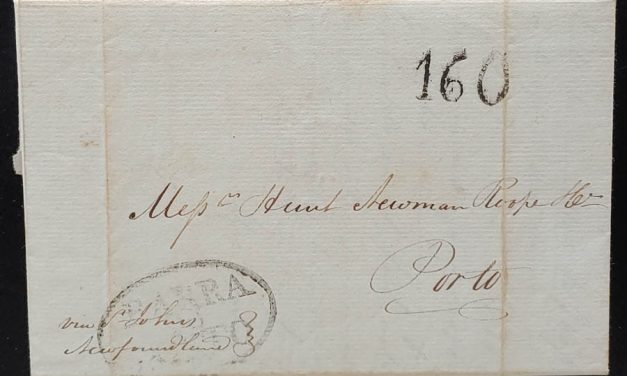 160
Messrs Hunt Newman Roope &Co
Porto
BARRA
via St Johns
Newfoundland